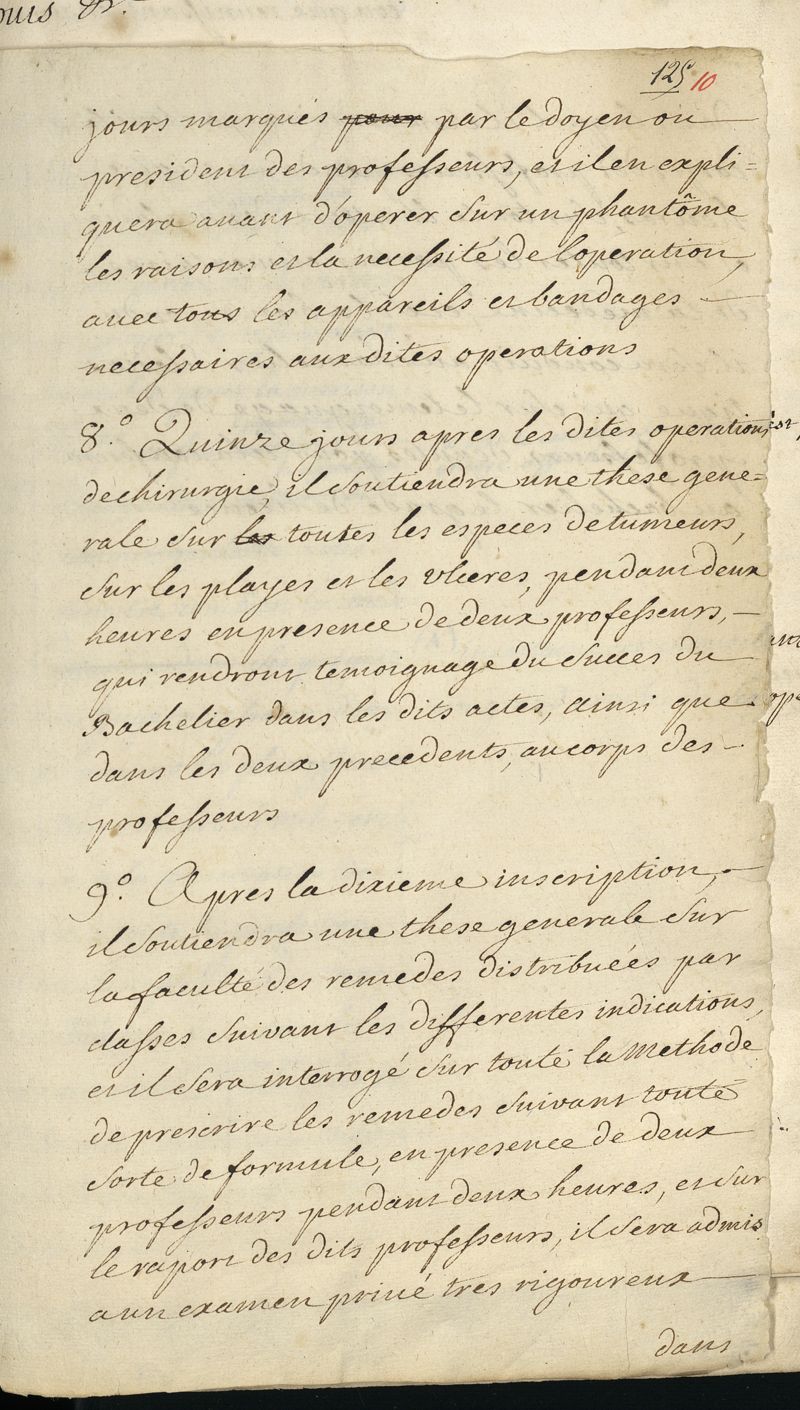 125 10
jours marqués pour par le doyen ou
president des professeurs, et il en expli=
quera auant d'óperer sur un phantôme
les raisons et la necessité de l'operation,
auec tous les appareils et bandages
necessaires aux dites operations
8.º Quinze jours apres les dites operations
de chirurgie, il soutiendra une these gene=
rale sur les toutes les especes de tumeurs,
sur les playes et les vlceres, pendant deux
heures en presence de deux professeurs, -
qui rendront temoignage du succes du
Bachelier dans les dits actes, ainsi que
dans les deux precedents, au corps des -
professeurs
9.º Apres la dixieme inscription, -
il soutiendra une these generale sur
la faculté des remedes distribuées par
classes suivant les differentes indications,
et il sera interrogé sur toute la methode
de prescrire les remedes suivant toute
sorte de formule, en presence de deux
professeurs pendant deux heures, et sur
le raport des dits professeurs, il sera admis
a un examen privé tres rigoureux
dans